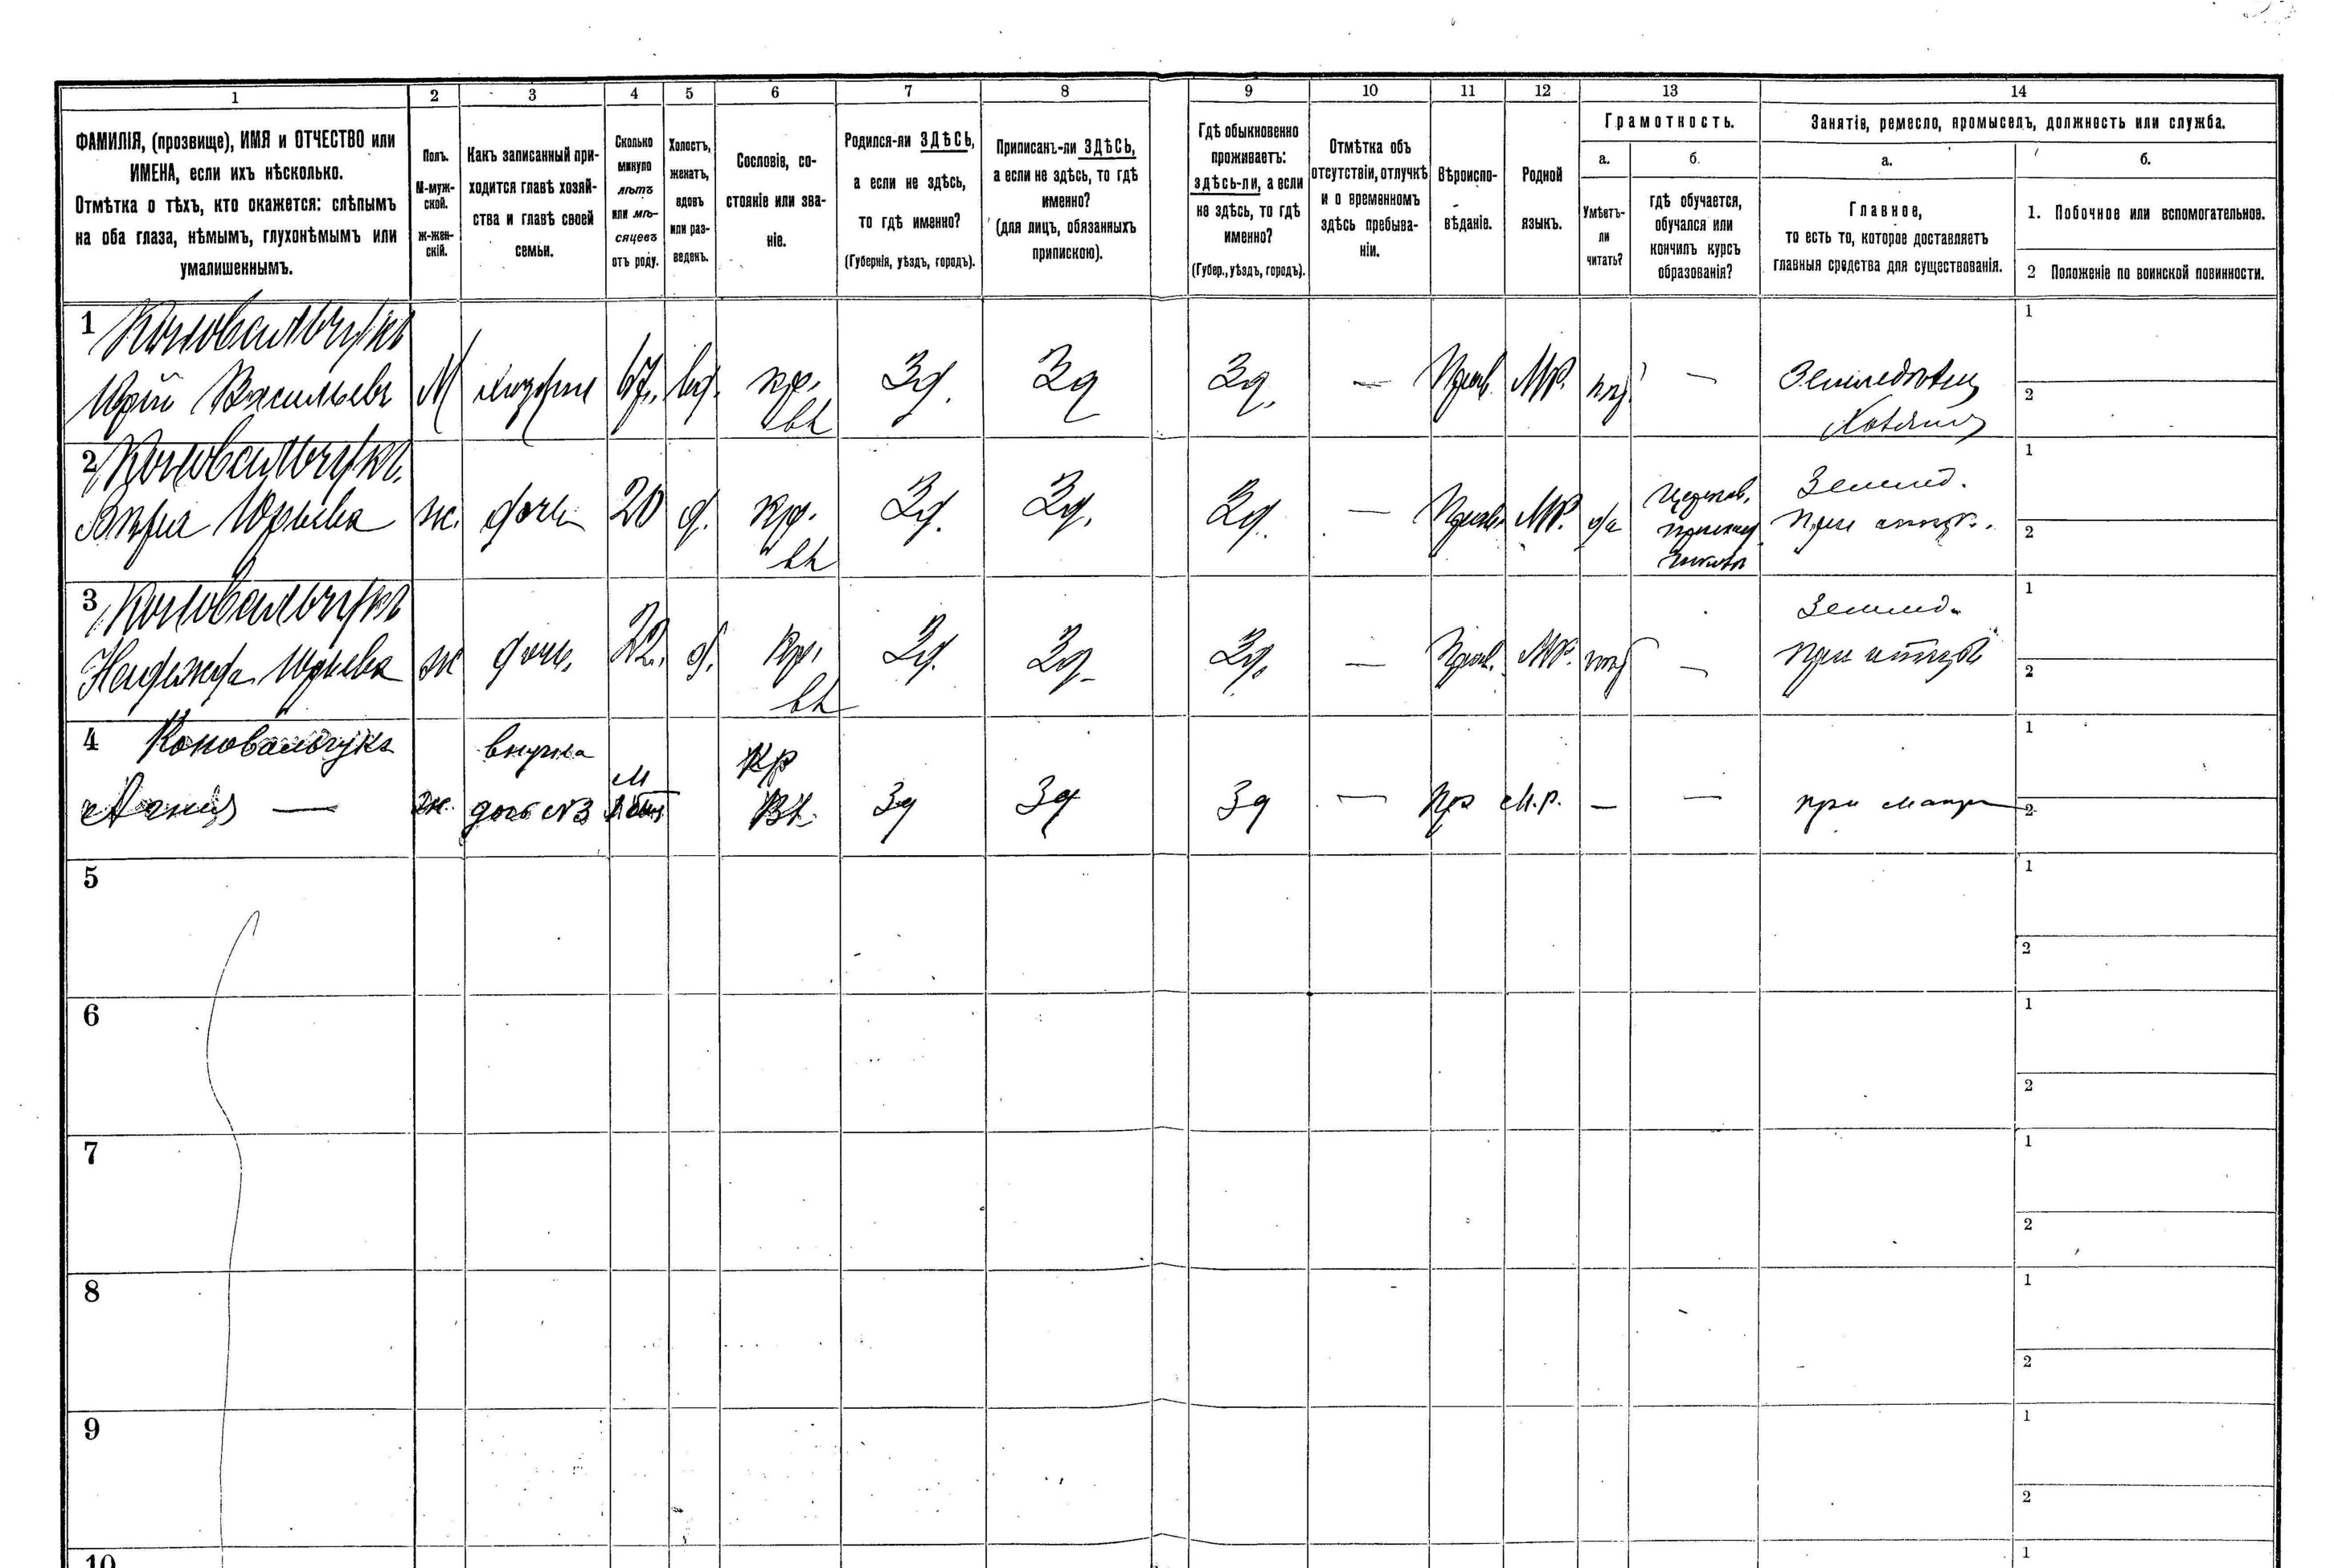 1 2 3 4 5 6 7 8 9 10 11 12 13 14
ФАМИЛІЯ, (прозвище), ИМЯ и ОТЧЕСТВО или
ИМЕНА, если ихъ нѣсколько.
Отмѣтка о тѣхъ, кто окажется: слѣпымъ
на оба глаза, нѣмымъ, глухонѣмымъ или
умалишеннымъ.
Полъ.
М-муж-
ской.
ж-жен-
скій.
Какъ записанный при-
ходится главѣ хозяй-
ства и главѣ своей
семьи.
Сколько
минуло
лѣтъ
или мѣ-
сяцевъ
отъ роду.
Холостъ,
женатъ,
вдовъ
или раз-
веденъ.
Сословіе, со-
стояніе или зва-
ніе.
Родился-ли ЗДѢСЬ,
а если не здѣсь,
то гдѣ именно?
(Губернія, уѣздъ, городъ).
Приписанъ-ли ЗДѢСЬ,
а если не здѣсь, то гдѣ
именно?
(для лицъ, обязанныхъ
припискою).
Гдѣ обыкновенно
проживаетъ:
здѣсь-ли, а если
не здѣсь, то гдѣ
именно?
(Губер., уѣздъ, городъ).
Отмѣтка объ
отсутствіи, отлучкѣ
и о временномъ
здѣсь пребыва-
ніи.
Вѣроиспо-
вѣданіе.
Родной
языкъ.
Грамотность.
а.
Умѣетъ-
ли
читать?
б.
гдѣ обучается,
обучался или
кончилъ курсъ
образованія?
Занятіе, ремесло, промыселъ, должность или служба.
а.
Главное,
то есть то, которое доставляетъ
главныя средства для существованія.
б.
1. Побочное или вспомогательное.
2 Положеніе по воинской повинности.
1 Коновальчукъ
Юрій Васильевъ М хозяинъ 67. вд. кр. Зд. Зд Зд. — Прав. МР. — Земледѣлец 1 2
2 Коновальчукъ
Вѣра Юрьева ж. дочь 20 д. кр. Зд. Зд. Зд. — Прав. МР. да Церков. приход. школа Землед. При отцѣ. 1 2
3 Коновальчукъ
Надежда Юрьева ж дочь. 22. д. Кр. Зд. Зд. Зд. — Прав. МР. — Землед. при отцѣ 1 2
4 Коновальчукъ внучка Кр
— ж. дочь №3 Вл. Зд Зд Зд — Пра М.р. — — при матери 1 2
5 1 2
6 1 2
7 1 2
8 1 2
9 1 2
10 1